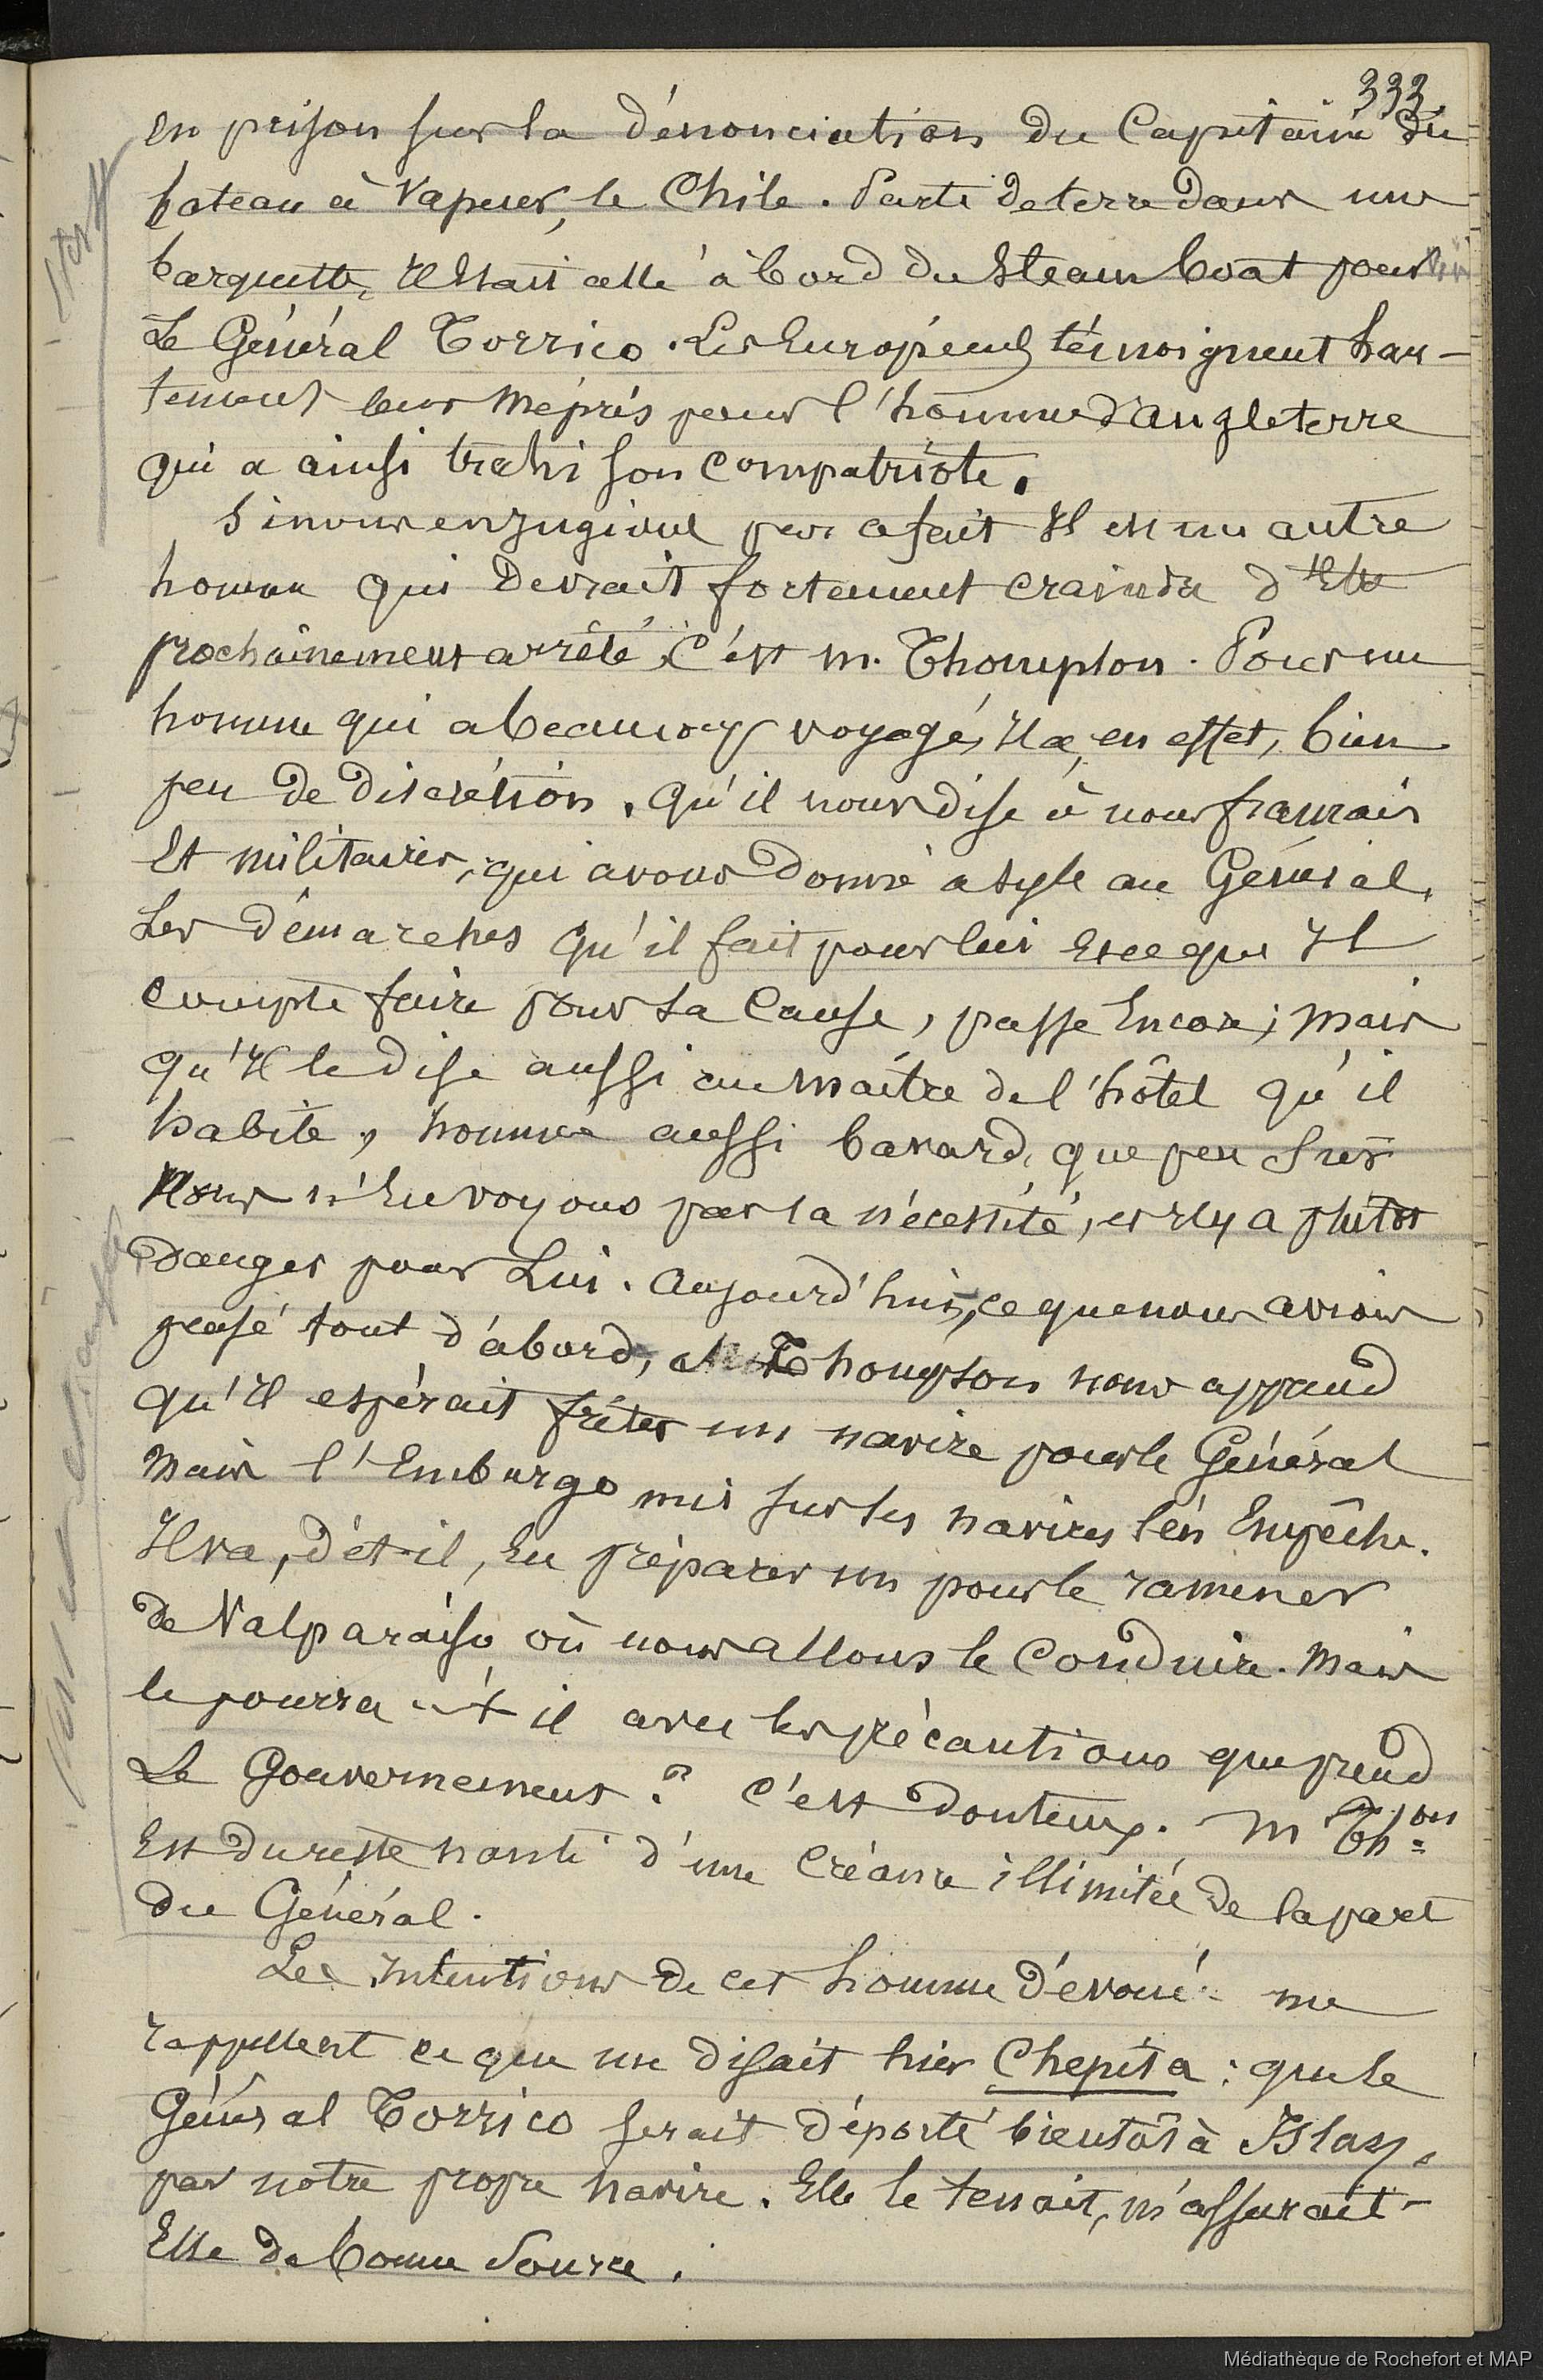 333.
en prison sur la dénonciation du Capitaine du
bateau à Vapeur, le Chile. Parti de terre dans une
barquette, il était allé à bord du Steam boat pour
Le Général Torrico. Les Européens témoignent hau-
tement leur mépris pour l'homme d'angleterre
qui a ainsi trahi son compatriote.
Si nous en jugions par ce fait Il est un autre
homme qui Devrait fortement craindre d'Etre
prochainement arrêté, C'est m. Thompson. Pour un
homme qui a beaucoup voyagé, Il a, en effet, bien
peu de discrétion. qu'il nous dise à nous français
Et militaires, qui avons Donné asyle au Général,
Les démarches qu'il fait pour lui et ce que Il
compte faire pour sa Cause, passe Encore; mais
qu'Il le dise aussi au maître de l'hôtel qu'il
habite, homme aussi bavard, que peu sûr
Nous n'En voyons pas la nécessité, et Il y a plutot
Danger pour Lui. Aujourd'hui, ce que nous avions
pensé tout d'abord, Thompson nous apprend
qu'Il espérait frêter un navire pour le Général
mais l'Embargo mis sur les navires l'en Empêche.
Il va, d'ét-il, En préparer un pour le ramener
de Valparaiso où nous allons le Conduire. Mais
le pourra-t-il avec les précautions que prend
Le Gouvernement? C'est Douteux. M Th.on
Est du reste nanti d'une Créance illimitée de la part
du Général.
Les intentions de cet homme dévoué me
rappellent ce que me disait hier Chepita: que le
Général Torrico serait déporté bientôt à Islay,
par notre propre navire. Elle le tenait, m'assurait-
Elle de bonne Source.
Médiathèque de Rochefort et MAP